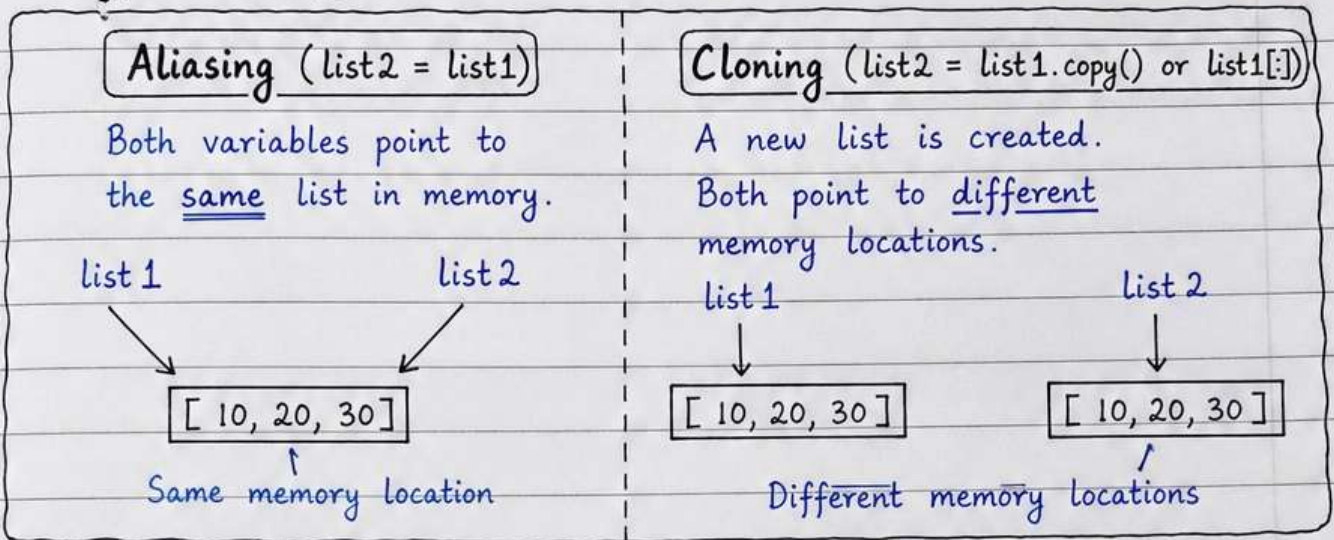 Aliasing (list2 = list1)
Both variables point to
the same list in memory.
list 1
list 2
[ 10, 20, 30 ]
Same memory location
Cloning (list2 = list1.copy() or list1[:])
A new list is created.
Both point to different
memory locations.
list 1
list 2
[ 10, 20, 30 ]
[ 10, 20, 30 ]
Different memory locations